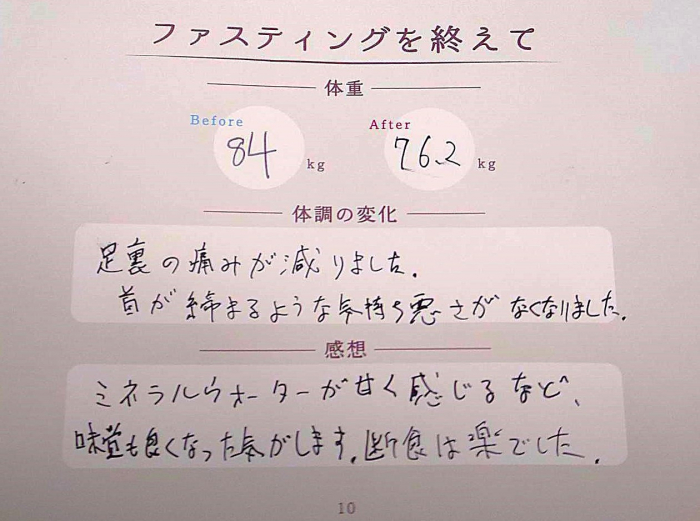 ファスティングを終えて
体重
Before
84 kg
After
76.2 kg
体調の変化
足裏の痛みが減りました.
首が締まるような気持ち悪さがなくなりました.
感想
ミネラルウォーターが甘く感じるなど、
味覚も良くなった気がします.断食は楽でした.
10